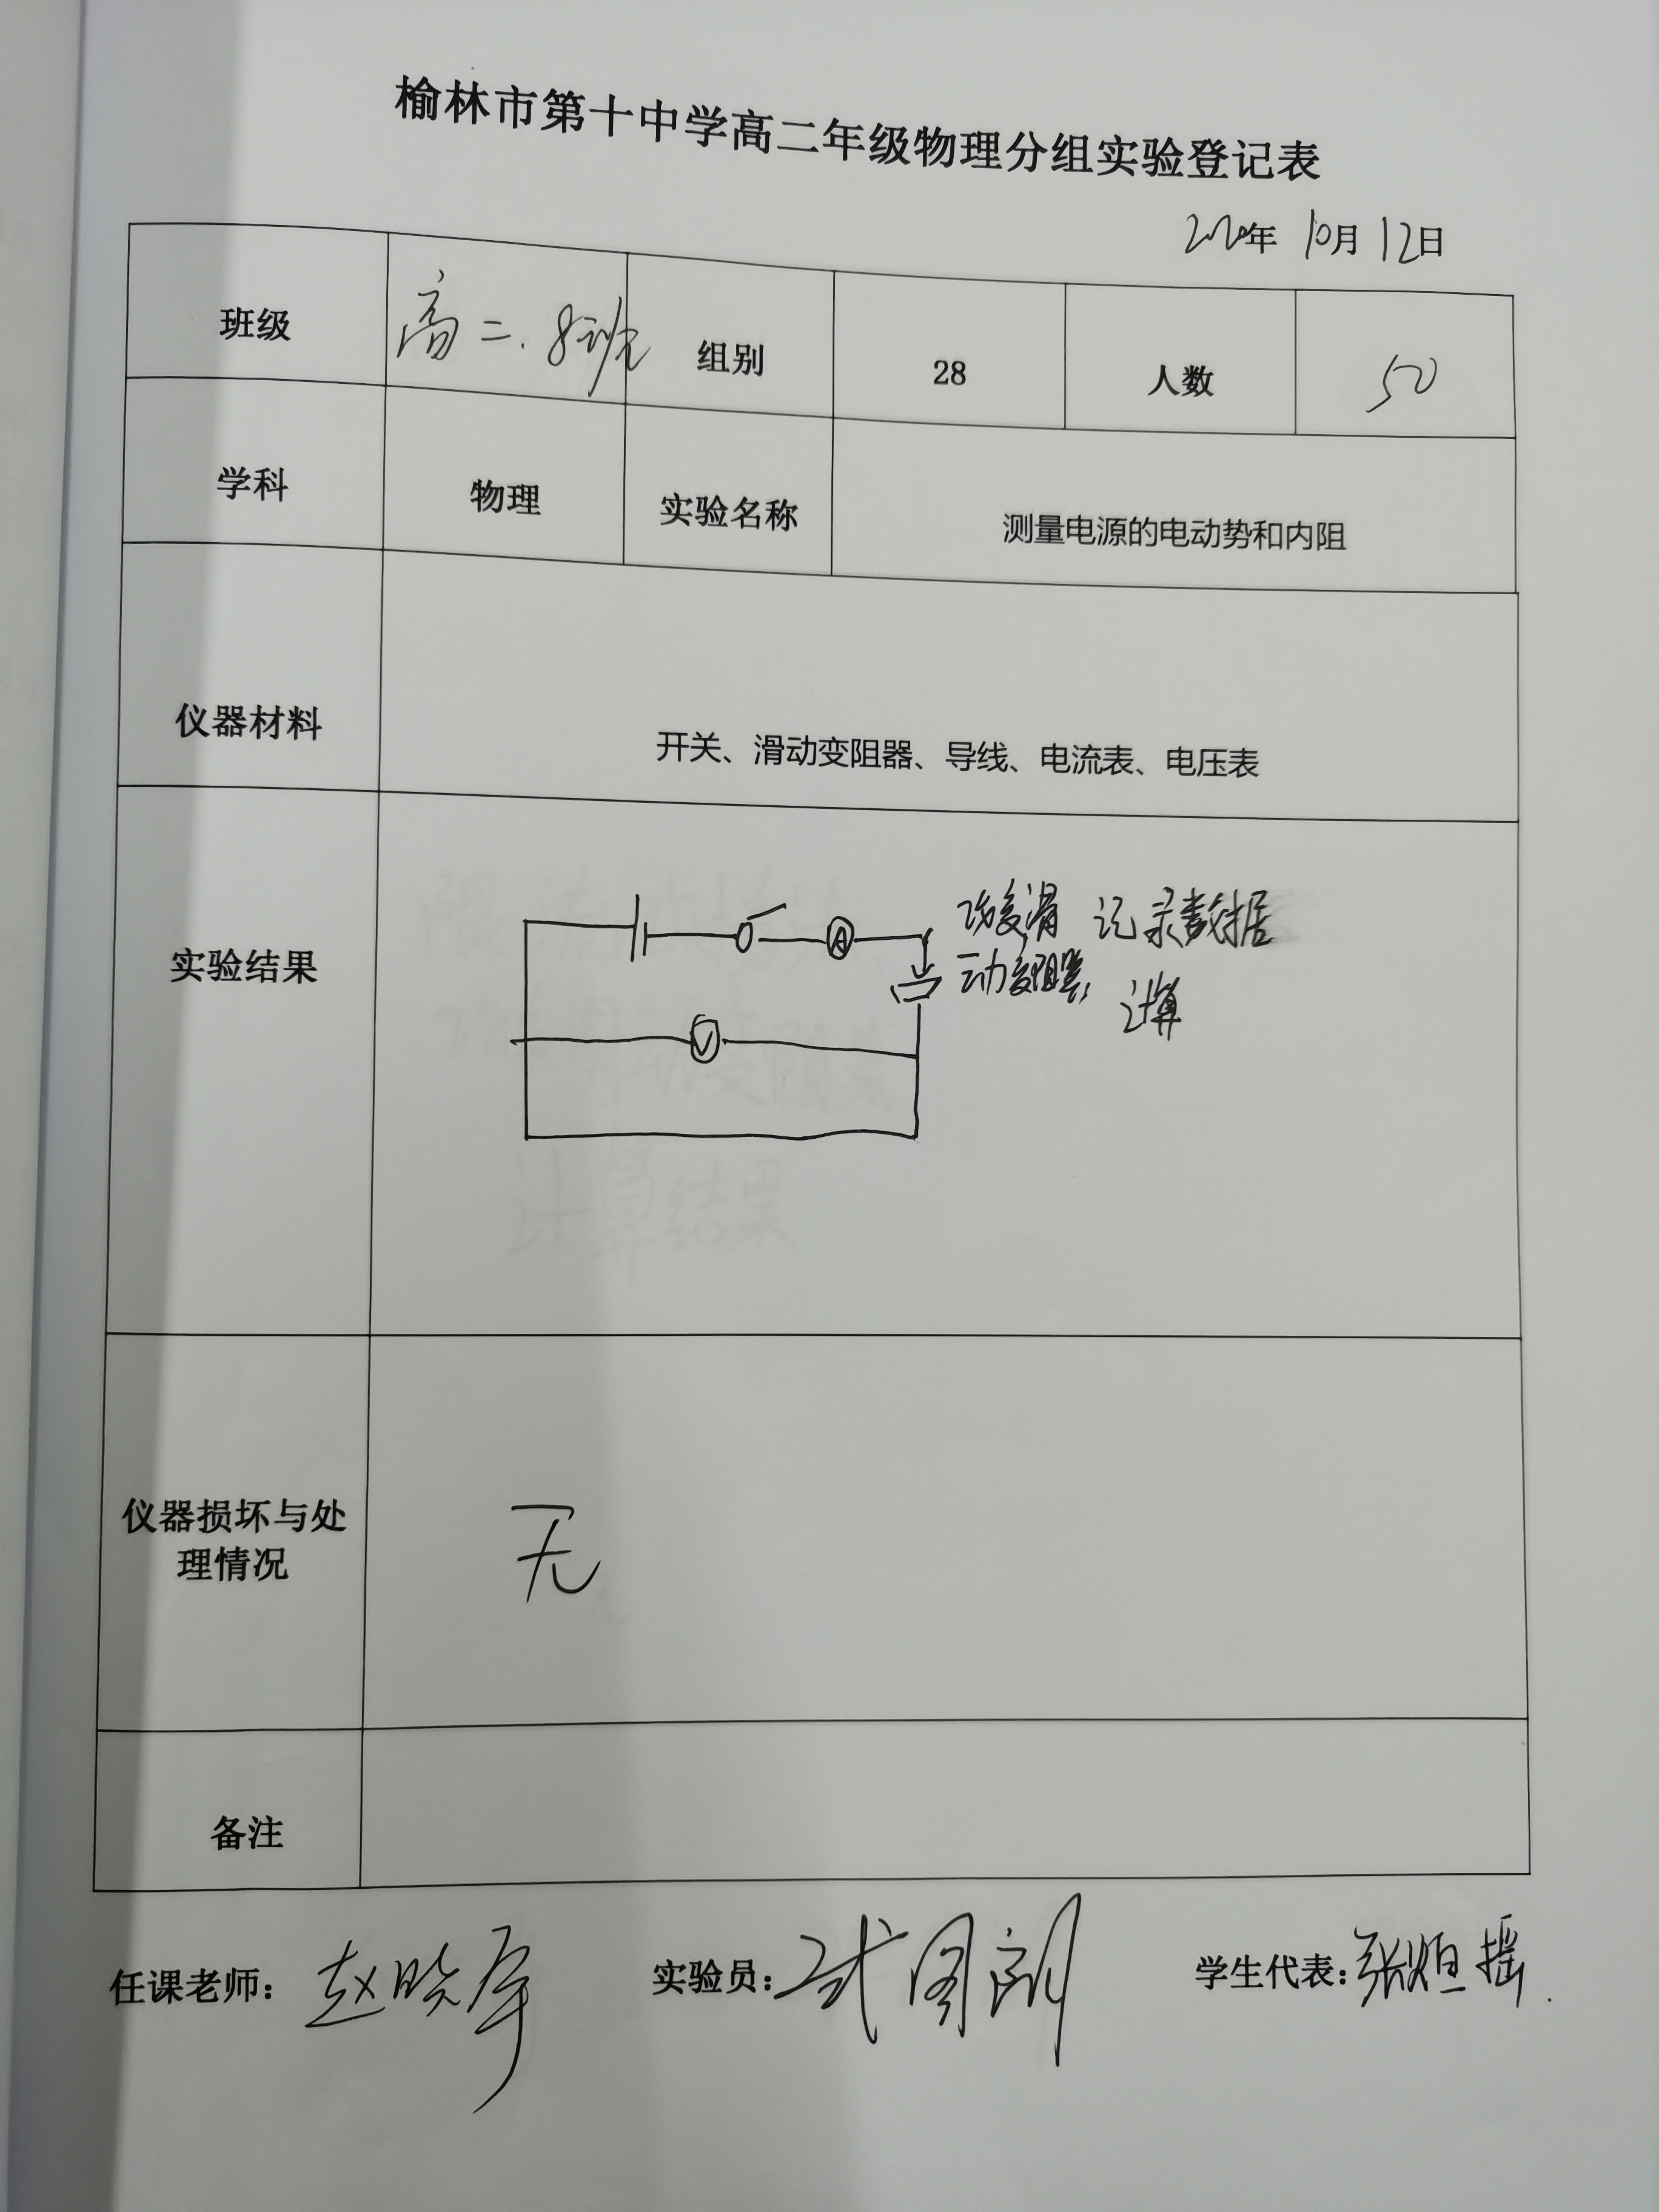 榆林市第十中学高二年级物理分组实验登记表
2020年 10月 12日
班级 高二.8班 组别 28 人数 50
学科 物理 实验名称 测量电源的电动势和内阻
仪器材料 开关、滑动变阻器、导线、电流表、电压表
实验结果
A
V
改变滑 记录数据
动变阻器, 计算
仪器损坏与处
理情况
无
备注
任课老师: 赵晓 实验员: 武 学生代表: 张 摇